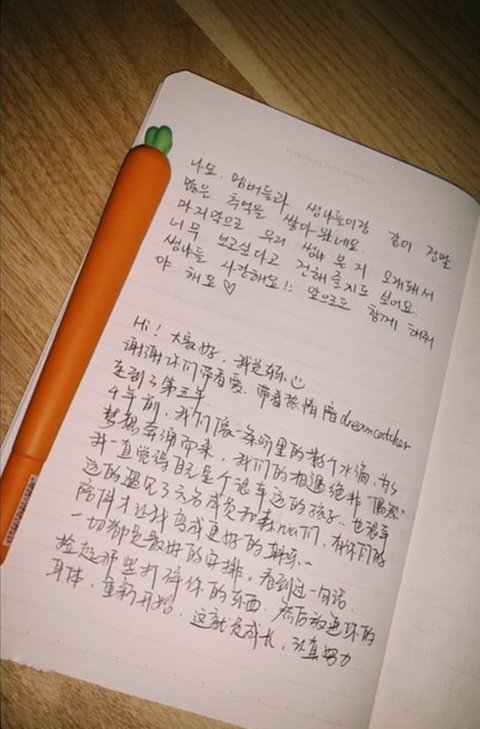 나요. 멤버들과 썸냐들이랑 같이 정말
많은 추억을 쌓아왔네요.
마지막으로 우리 썸냐 본 지 오래돼서
너무 보고싶다고 전해줄지도 싶어요
썸냐들 사랑해요!! 앞으로도 함께 해줘
야 해요♡
Hi! 大家好，我是东东
谢谢你们带着爱，带着热情陪dreamcatcher
走到了第三年
4年前，我们像一条河里的数个水滴，为了
梦想奔涌而来，我们的相遇绝非“偶然”
我一直觉得自己是个很幸运的孩子..也很幸
运的遇见了六名成员和春nia们，有你们的
陪伴才让我变成更好的韩东..
一切都是最好的安排。看到过一句话.
捡起那些打碎你的东西，然后放进你的
身体，重新开始，这就是成长，认真努力